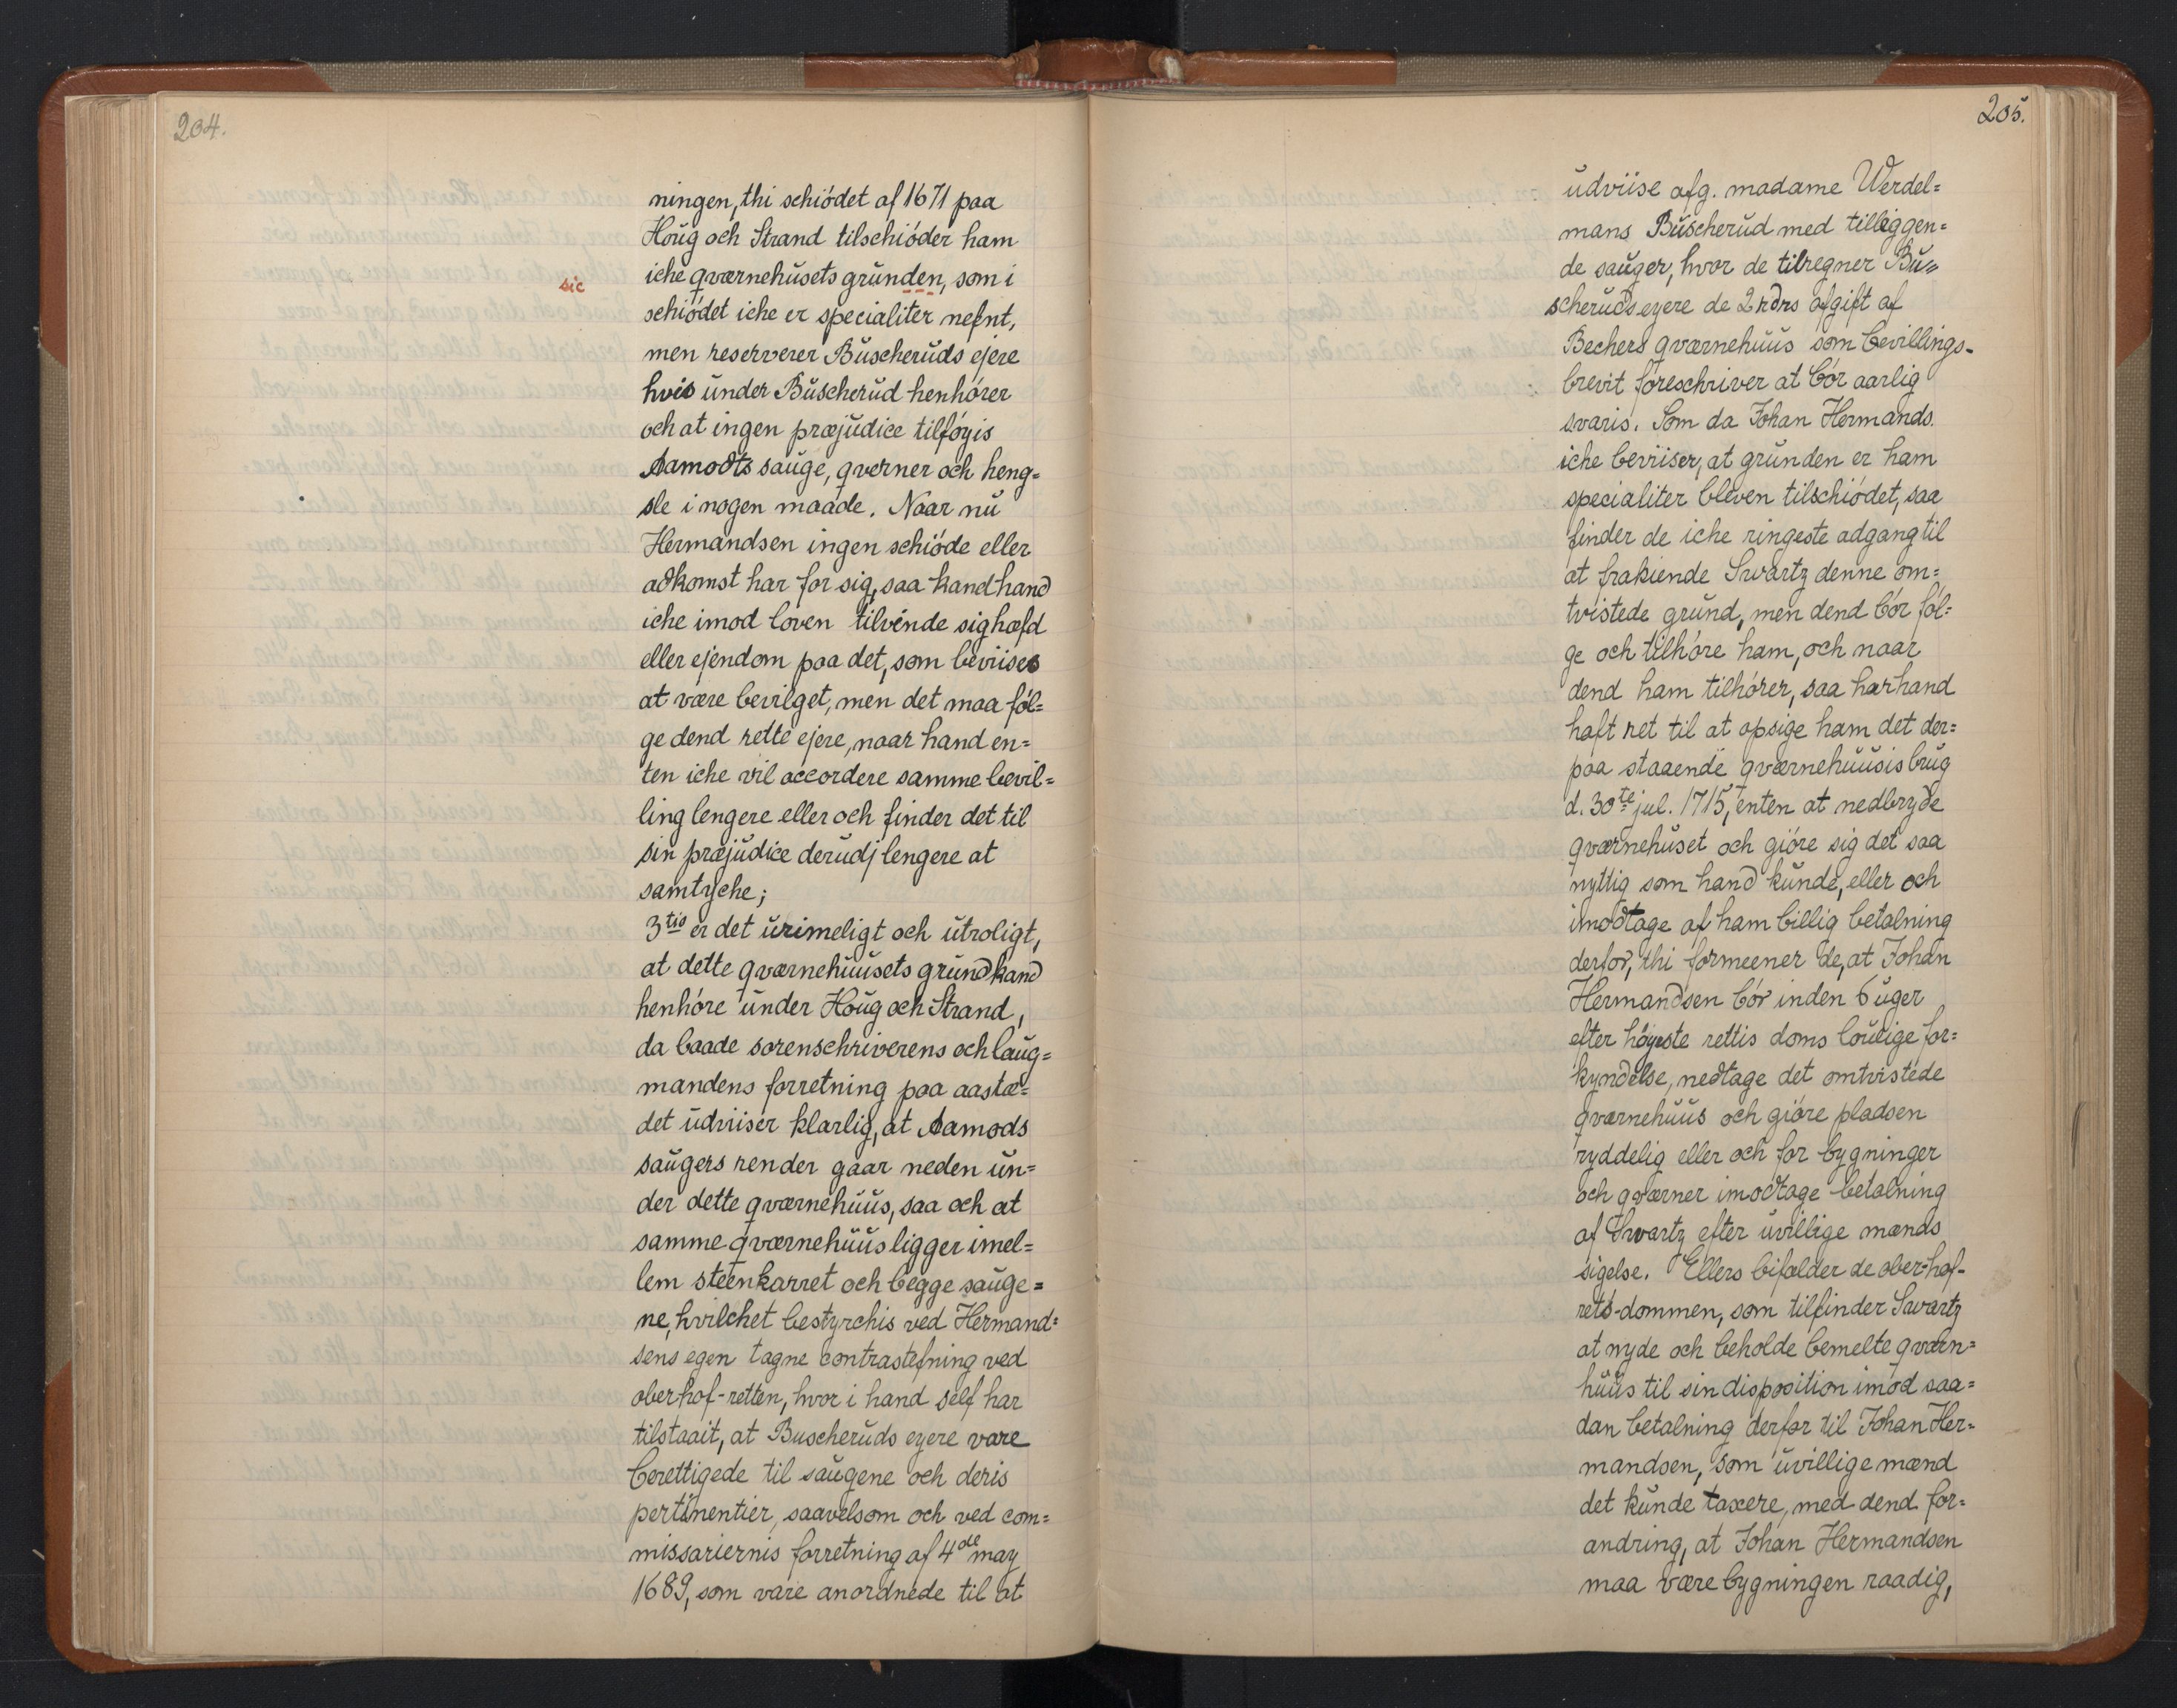 204.
ningen, thi schiödet af 1671 paa
Houg och Strand tilschiöder ham
sic
iche qværnehusets grunden, som i
schiödet iche er specialiter nefnt,
men reserverer Buscheruds ejere
hvis under Buscherud henhörer
och at ingen præjudice tilföyis
Aamodts sauge, qverner och heng=
sle i nogen maade. Naar nu
Hermandsen ingen schiöde eller
adkomst har for sig, saa kand hand
iche imod loven tilvende sig hæfd
eller ejendom paa det, som beviises
at være bevilget, men det maa föl=
ge dend rette ejere, naar hand en=
ten iche vil accordere samme bevil=
ling lengere eller och finder det til
sin præjudice derudj lengere at
samtyche;
3tio er det urimeligt och utroligt,
at dette qværnehuusets grund kand
henhöre under Houg och Strand,
da baade sorenschriverens och laug=
mandens forretning paa aastæ=
det udviiser klarlig, at Aamods
saugers render gaar neden un=
der dette qværnehuus, saa och at
samme qværnehuus ligger imel=
lem steenkarret och begge sauge=
ne, hvilchet bestyrchis ved Hermand=
sens egen tagne contrastefning ved
oberhof-retten, hvor i hand self har
tilstaait, at Buscheruds eyere vare
berettigede til saugene och deris
pertinentier, saavelsom och ved com=
missariernis forretning af 4de may
1689, som vare anordnede til at
205.
udviise afg. madame Werdel=
mans Buscherud med tilliggen=
de sauger, hvor de tilregner Bu=
scheruds eyere de 2 rdrs afgift af
Bechers qværnehuus som bevillings-
brevit foreschriver at bör aarlig
svaris. Som da Johan Hermands.
iche beviiser, at grunden er ham
specialiter bleven tilschiödet, saa
finder de iche ringeste adgang til
at frakiende Swartz denne om=
tvistede grund, men dend bör föl=
ge och tilhöre ham, och naar
dend ham tilhörer, saa har hand
haft ret til at opsige ham det der=
paa staaende qværnehuusis brug
d. 30te jul. 1715, enten at nedbryde
qværnehuset och giöre sig det saa
nyttig som hand kunde, eller och
imodtage af ham billig betalning
derfor, thi formeener de, at Johan
Hermandsen bör inden 6 uger
efter höyeste rettis doms lovlige for=
kyndelse, nedtage det omtvistede
qværnehuus och giöre pladsen
ryddelig eller och for bygninger
och qværner imodtage betalning
af Swartz efter uvillige mænds
sigelse. Ellers bifalder de ober-hof-
rets-dommen, som tilfinder Swartz
at nyde och beholde bemelte qværn=
huus til sin disposition imod saa=
dan betalning derfor til Johan Her=
mandsen, som uvillige mænd
det kunde taxere, med dend for=
andring, at Johan Hermandsen
maa være bygningen raadig,